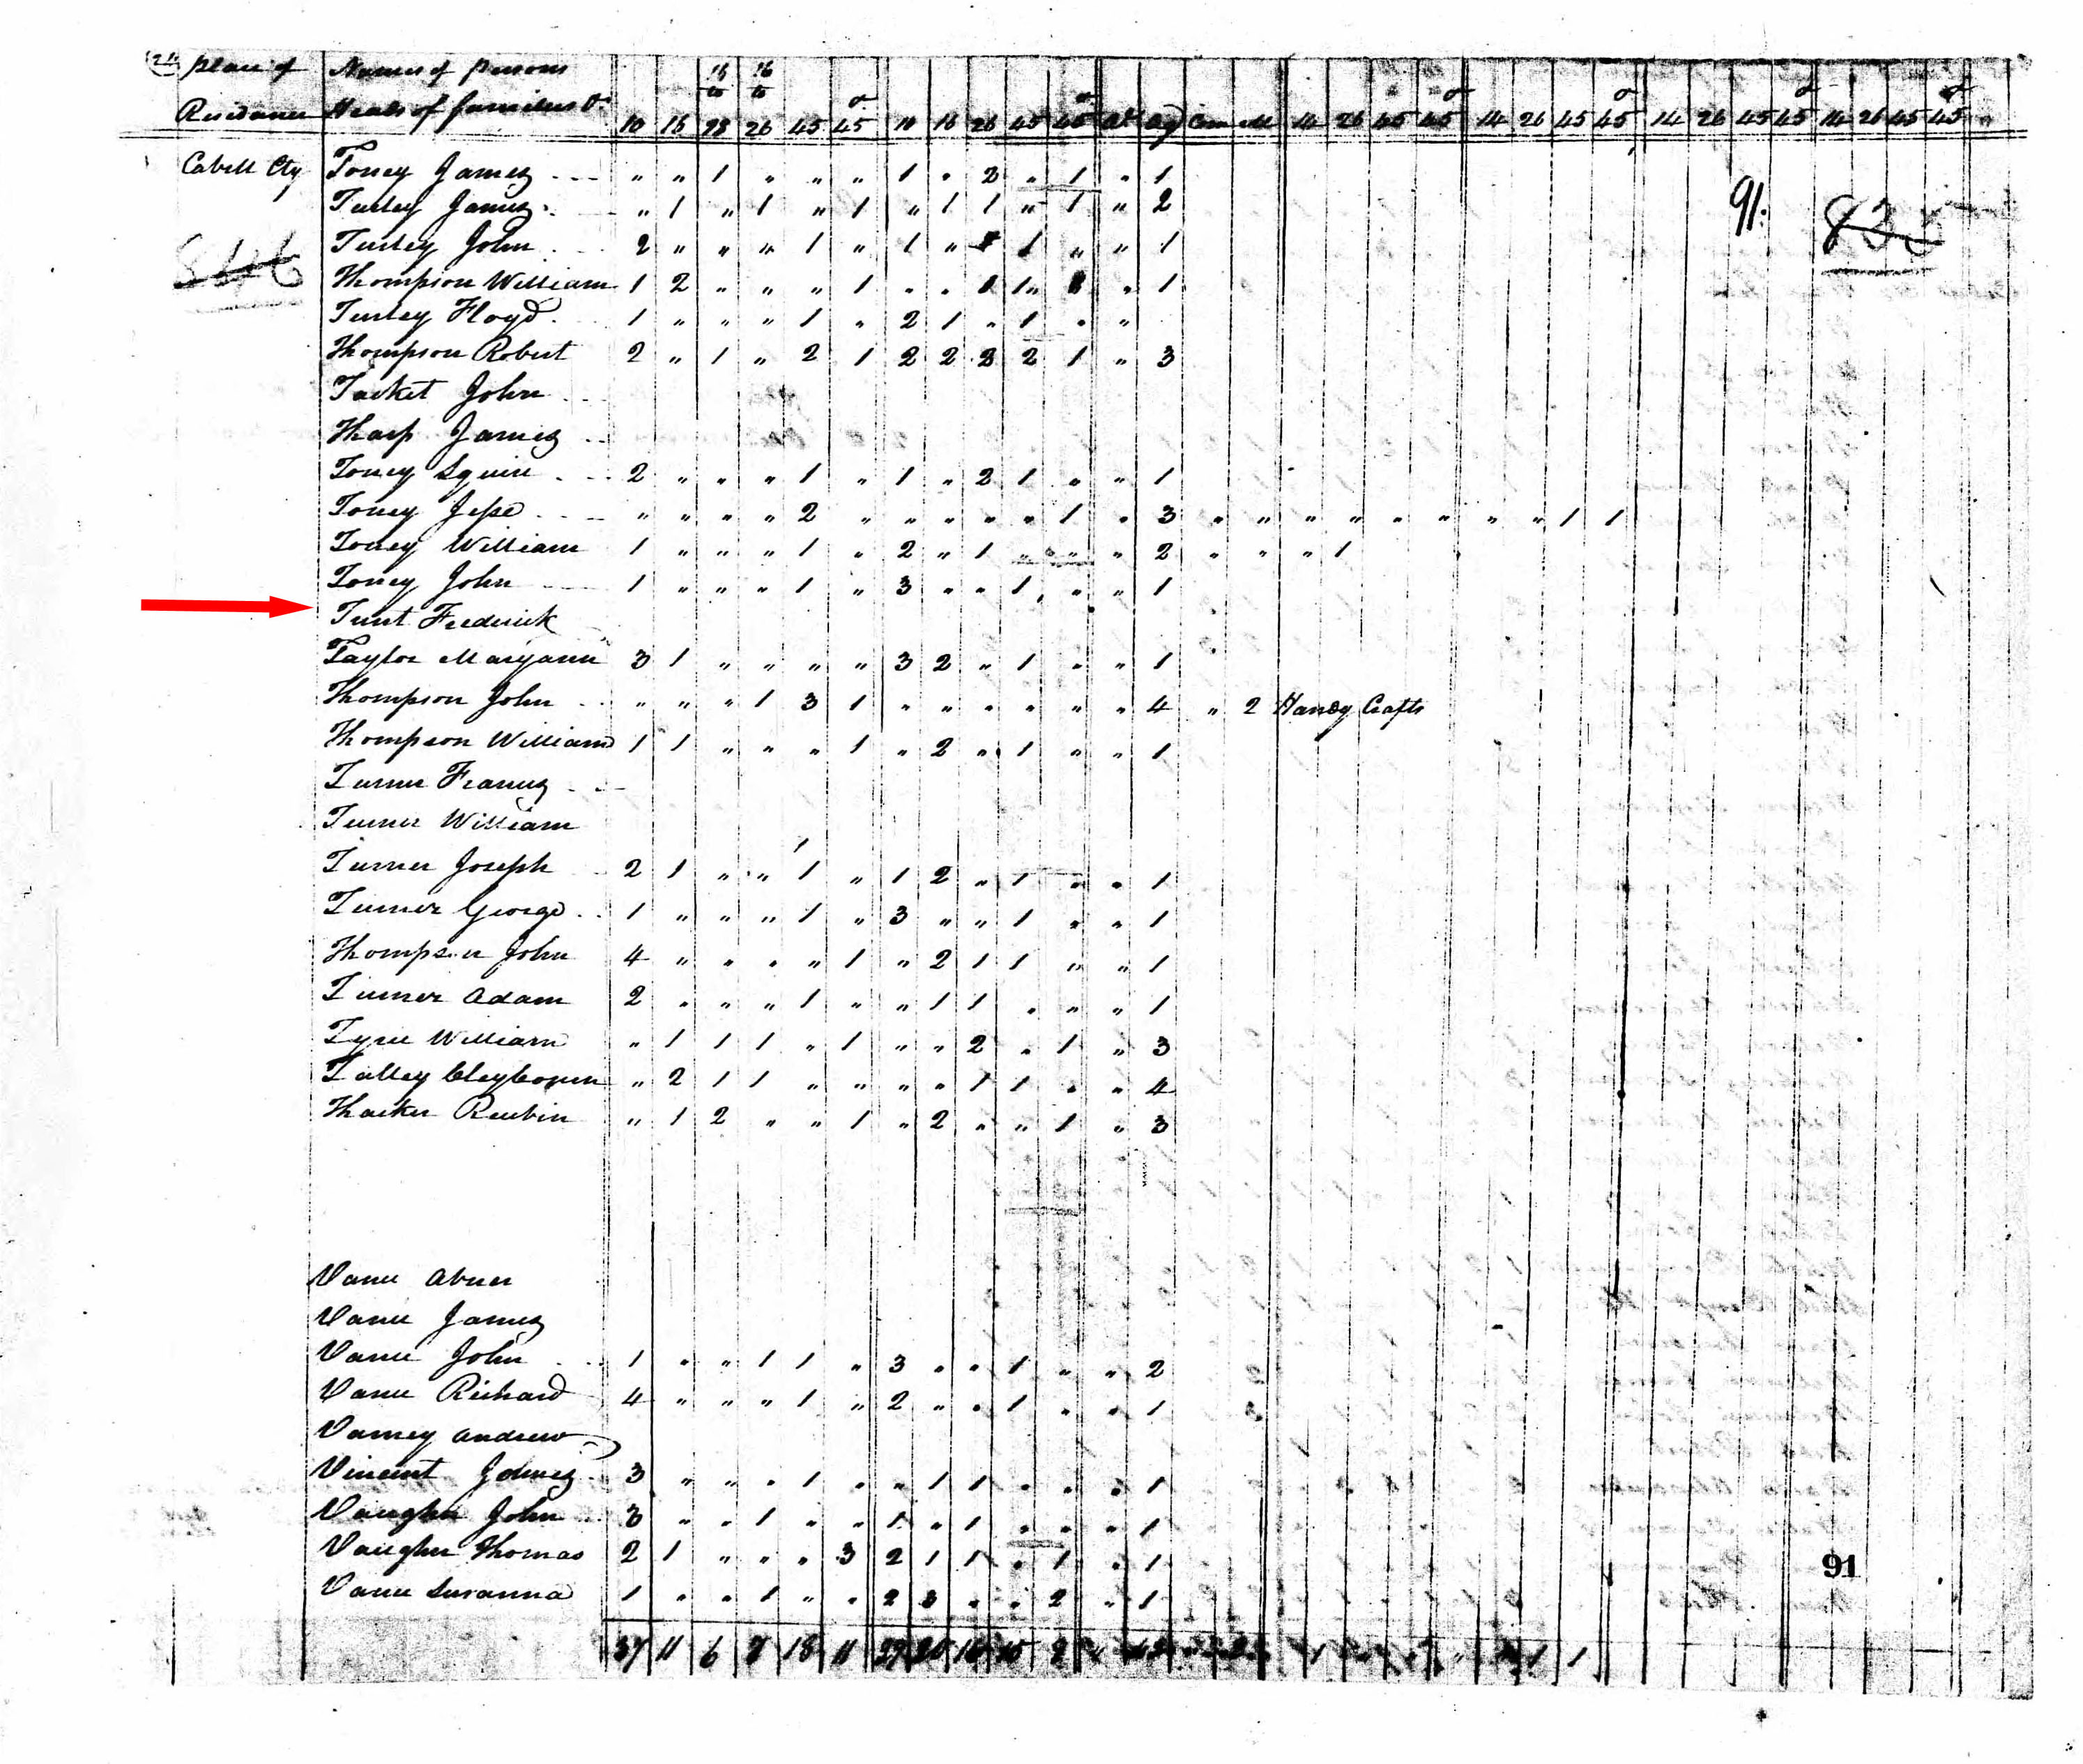 24 place of Names of persons 16 16
Residence Heads of families &c to to
10 16 28 26 45 45 10 16 26 45 45 Ag Com M 14 26 45 45 14 26 45 45 14 26 45 45 14 26 45 45
Cabell Cty Toney James " " 1 " " " 1 " 2 " 1 " 1
Turley James " 1 " 1 " 1 " 1 1 " 1 " 2
91.
835
Turley John 2 " " " 1 " 1 " 1 " " 1
846
Thompson William 1 2 " " " 1 " " 1 1 " 1
Turley Floyd 1 " " " 1 " 2 1 " 1 " "
Thompson Robert 2 " 1 " 2 1 2 2 3 2 1 " 3
Tacket John
Tharp James
Toney Squire 2 " " " 1 " 1 " 2 1 " " 1
Toney Jesse " " " " 2 " " " " " 1 " 3 " " " " " " " " 1 1
Toney William 1 " " " 1 " 2 " 1 " " " 2 " " " 1
Toney John 1 " " " 1 " 3 " " 1 " " 1
Tunt Frederick
Taylor Maryann 3 1 " " " " 3 2 " 1 " " 1
Thompson John " " " 1 3 1 " " " " " " 4 " 2 Handy Crafts
Thompson William 1 1 " " " 1 " 2 " 1 " " 1
Turner Francis
Turner William
Turner Joseph 2 1 " " 1 " 1 2 " 1 " " 1
Turner George 1 " " " 1 " 3 " " 1 " " 1
Thompson John 4 " " " " 1 " 2 1 1 " " 1
Turner Adam 2 " " " 1 " " 1 1 " " " 1
Tyree William " 1 1 1 " 1 " " 2 " 1 " 3
Talley Cleybourn " 2 1 1 " " " " 1 1 " " 4
Thacker Reubin " 1 2 " " 1 " 2 " " 1 " 3
Vance Abner
Vance James
Vance John 1 " " 1 1 " 3 " " 1 " " 2
Vance Richard 4 " " " 1 " 2 " " 1 " " 1
Varney Andrew
Vincent James 3 " " " 1 " " 1 1 " " " 1
Vaughn John 3 " " 1 " " 1 " 1 " " " 1
Vaughn Thomas 2 1 " " " 3 2 1 1 " 1 " 1
91
Vance Susanna 1 " " 1 " " 2 3 " " 2 " 1
37 11 6 18 11 1 1